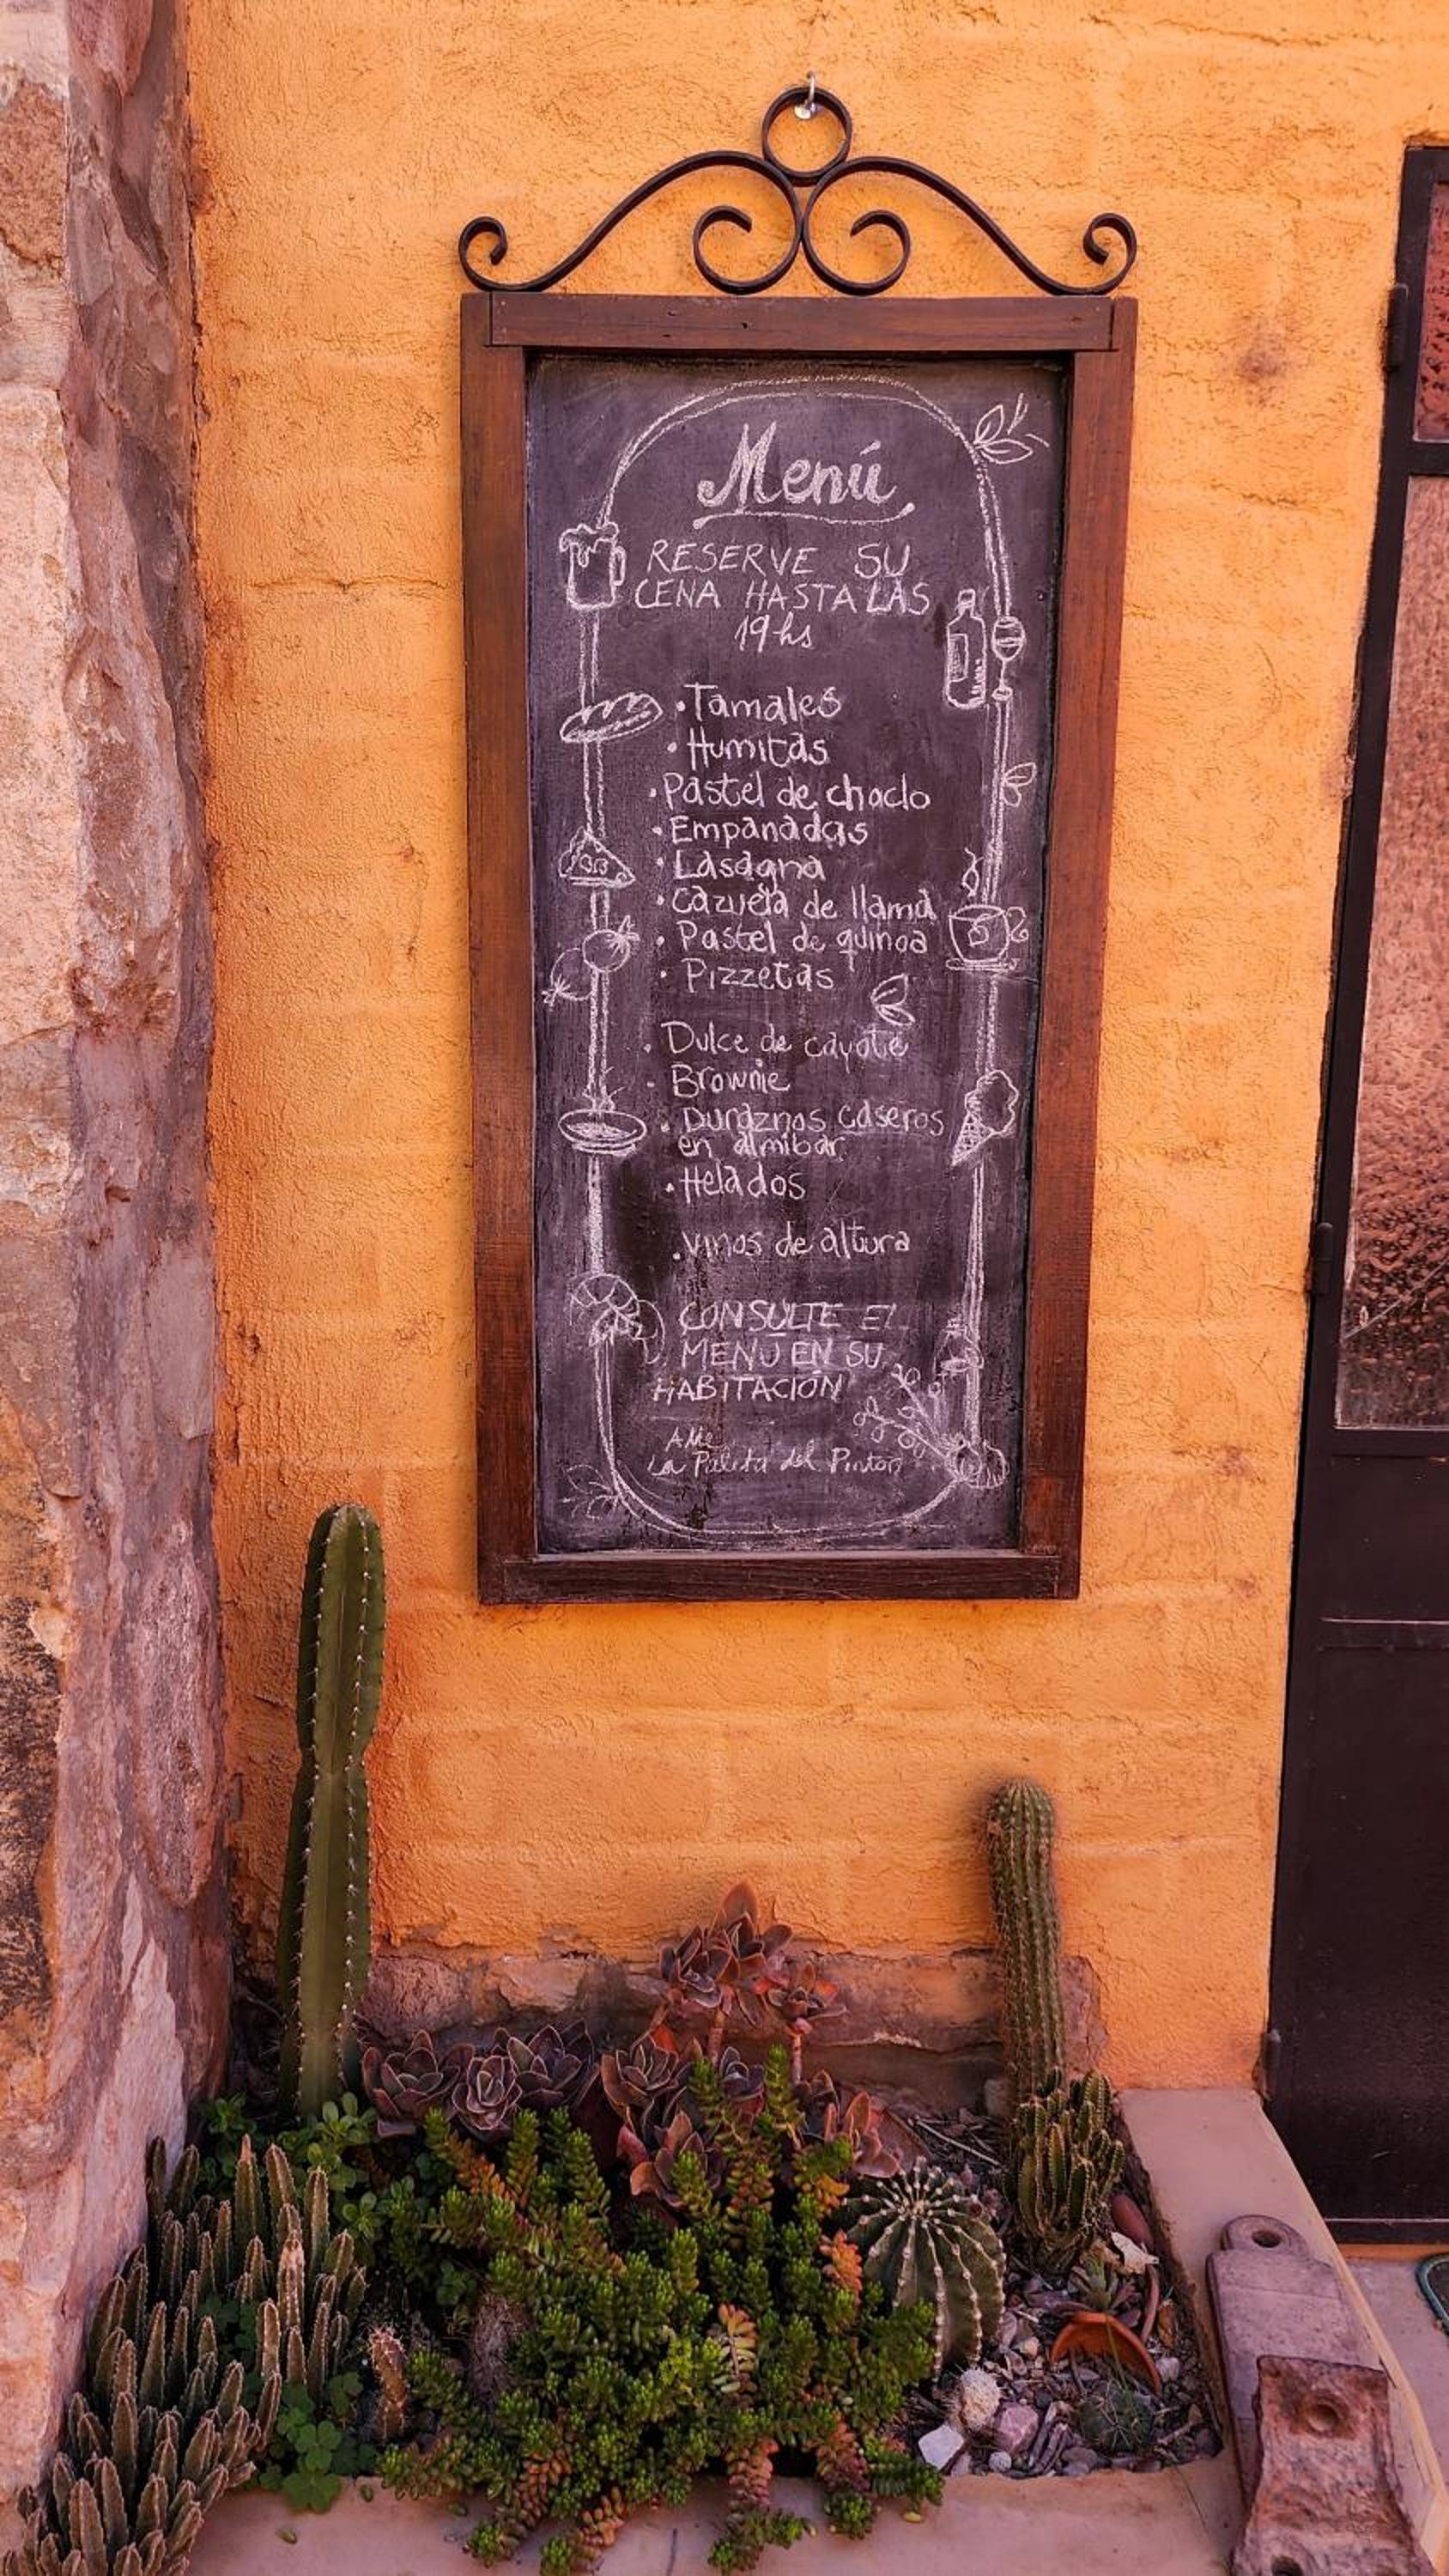 Menú
RESERVE SU
CENA HASTA LAS
19 hs
• Tamales
• Humitas
• Pastel de choclo
• Empanadas
• Lasagna
• Cazuela de llama
• Pastel de quinoa
• Pizzetas
• Dulce de cayote
• Brownie
• Duraznos caseros
en almíbar.
• Helados
• Vinos de altura
CONSULTE EL
MENÚ EN SU
HABITACIÓN
La Paleta del Pintor